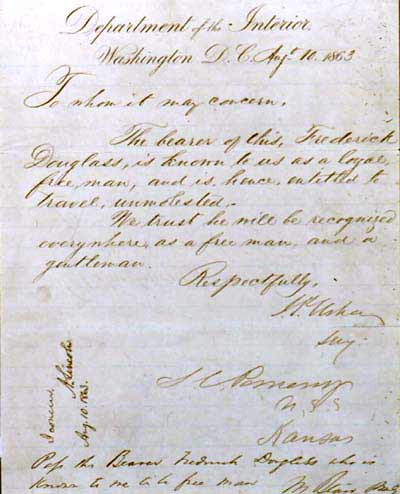 Department of the Interior.
Washington D. C. Augt. 10. 1863
To whom it may concern,
The bearer of this, Frederick
Douglass, is known to us as a loyal,
free, man, and is, hence, entitled to
travel, unmolested.
We trust he will be recognized
everywhere, as a free man, and a
gentleman.
Respectfully,
J. P. Usher
Secy.
S. C. Pomeroy
U. S. S
Kansas
I concur
A. Lincoln
Aug. 10. 1863.
Pass the Bearer Frederick Douglass who is
known to me to be free man